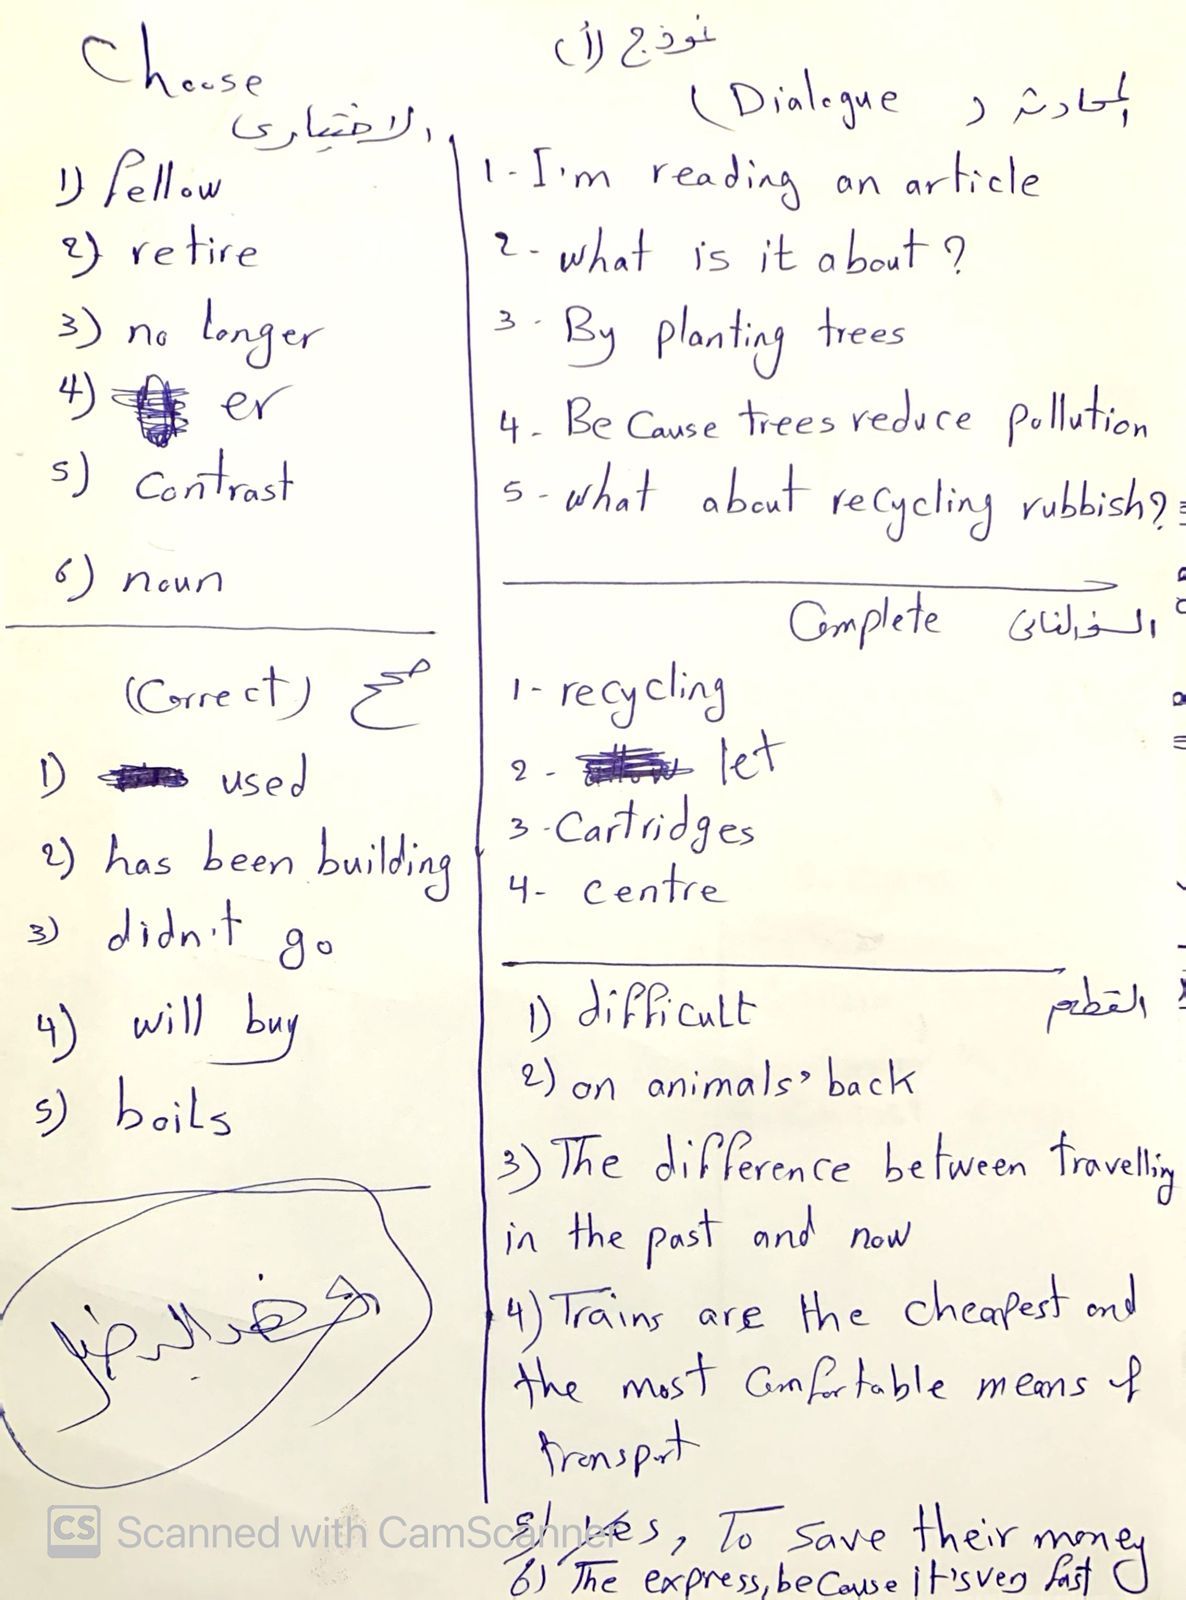 نموذج (أ)
المحادثة ( Dialogue )
1 - I'm reading an article
2 - what is it about ?
3 - By planting trees
4 - BeCause trees reduce pollution
5 - what about recycling rubbish?
Complete
1 - recycling
2 - let
3 - Cartridges
4 - centre
القطعة
1) difficult
2) on animals' back
3) The difference between travelling
in the past and now
4) Trains are the cheapest and
the most comfortable means of
transport
5) yes, To save their money
6) The express, because it's very fast
Choose
الاختيارى
1) fellow
2) retire
3) no longer
4) er
5) contrast
6) noun
(Correct) صحح
1) used
2) has been building
3) didn't go
4) will buy
5) boils
CS Scanned with CamScanner